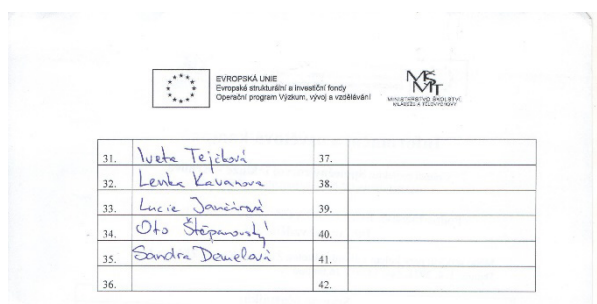 EVROPSKÁ UNIE
Evropské strukturální a investiční fondy
Operační program Výzkum, vývoj a vzdělávání
MŠMT
MINISTERSTVO ŠKOLSTVÍ,
MLÁDEŽE A TĚLOVÝCHOVY
31. Iveta Tejčková 37.
32. Lenka Kavanova 38.
33. Lucie Jančárová 39.
34. Oto Štěpanovský 40.
35. Sandra Demelová 41.
36. 42.